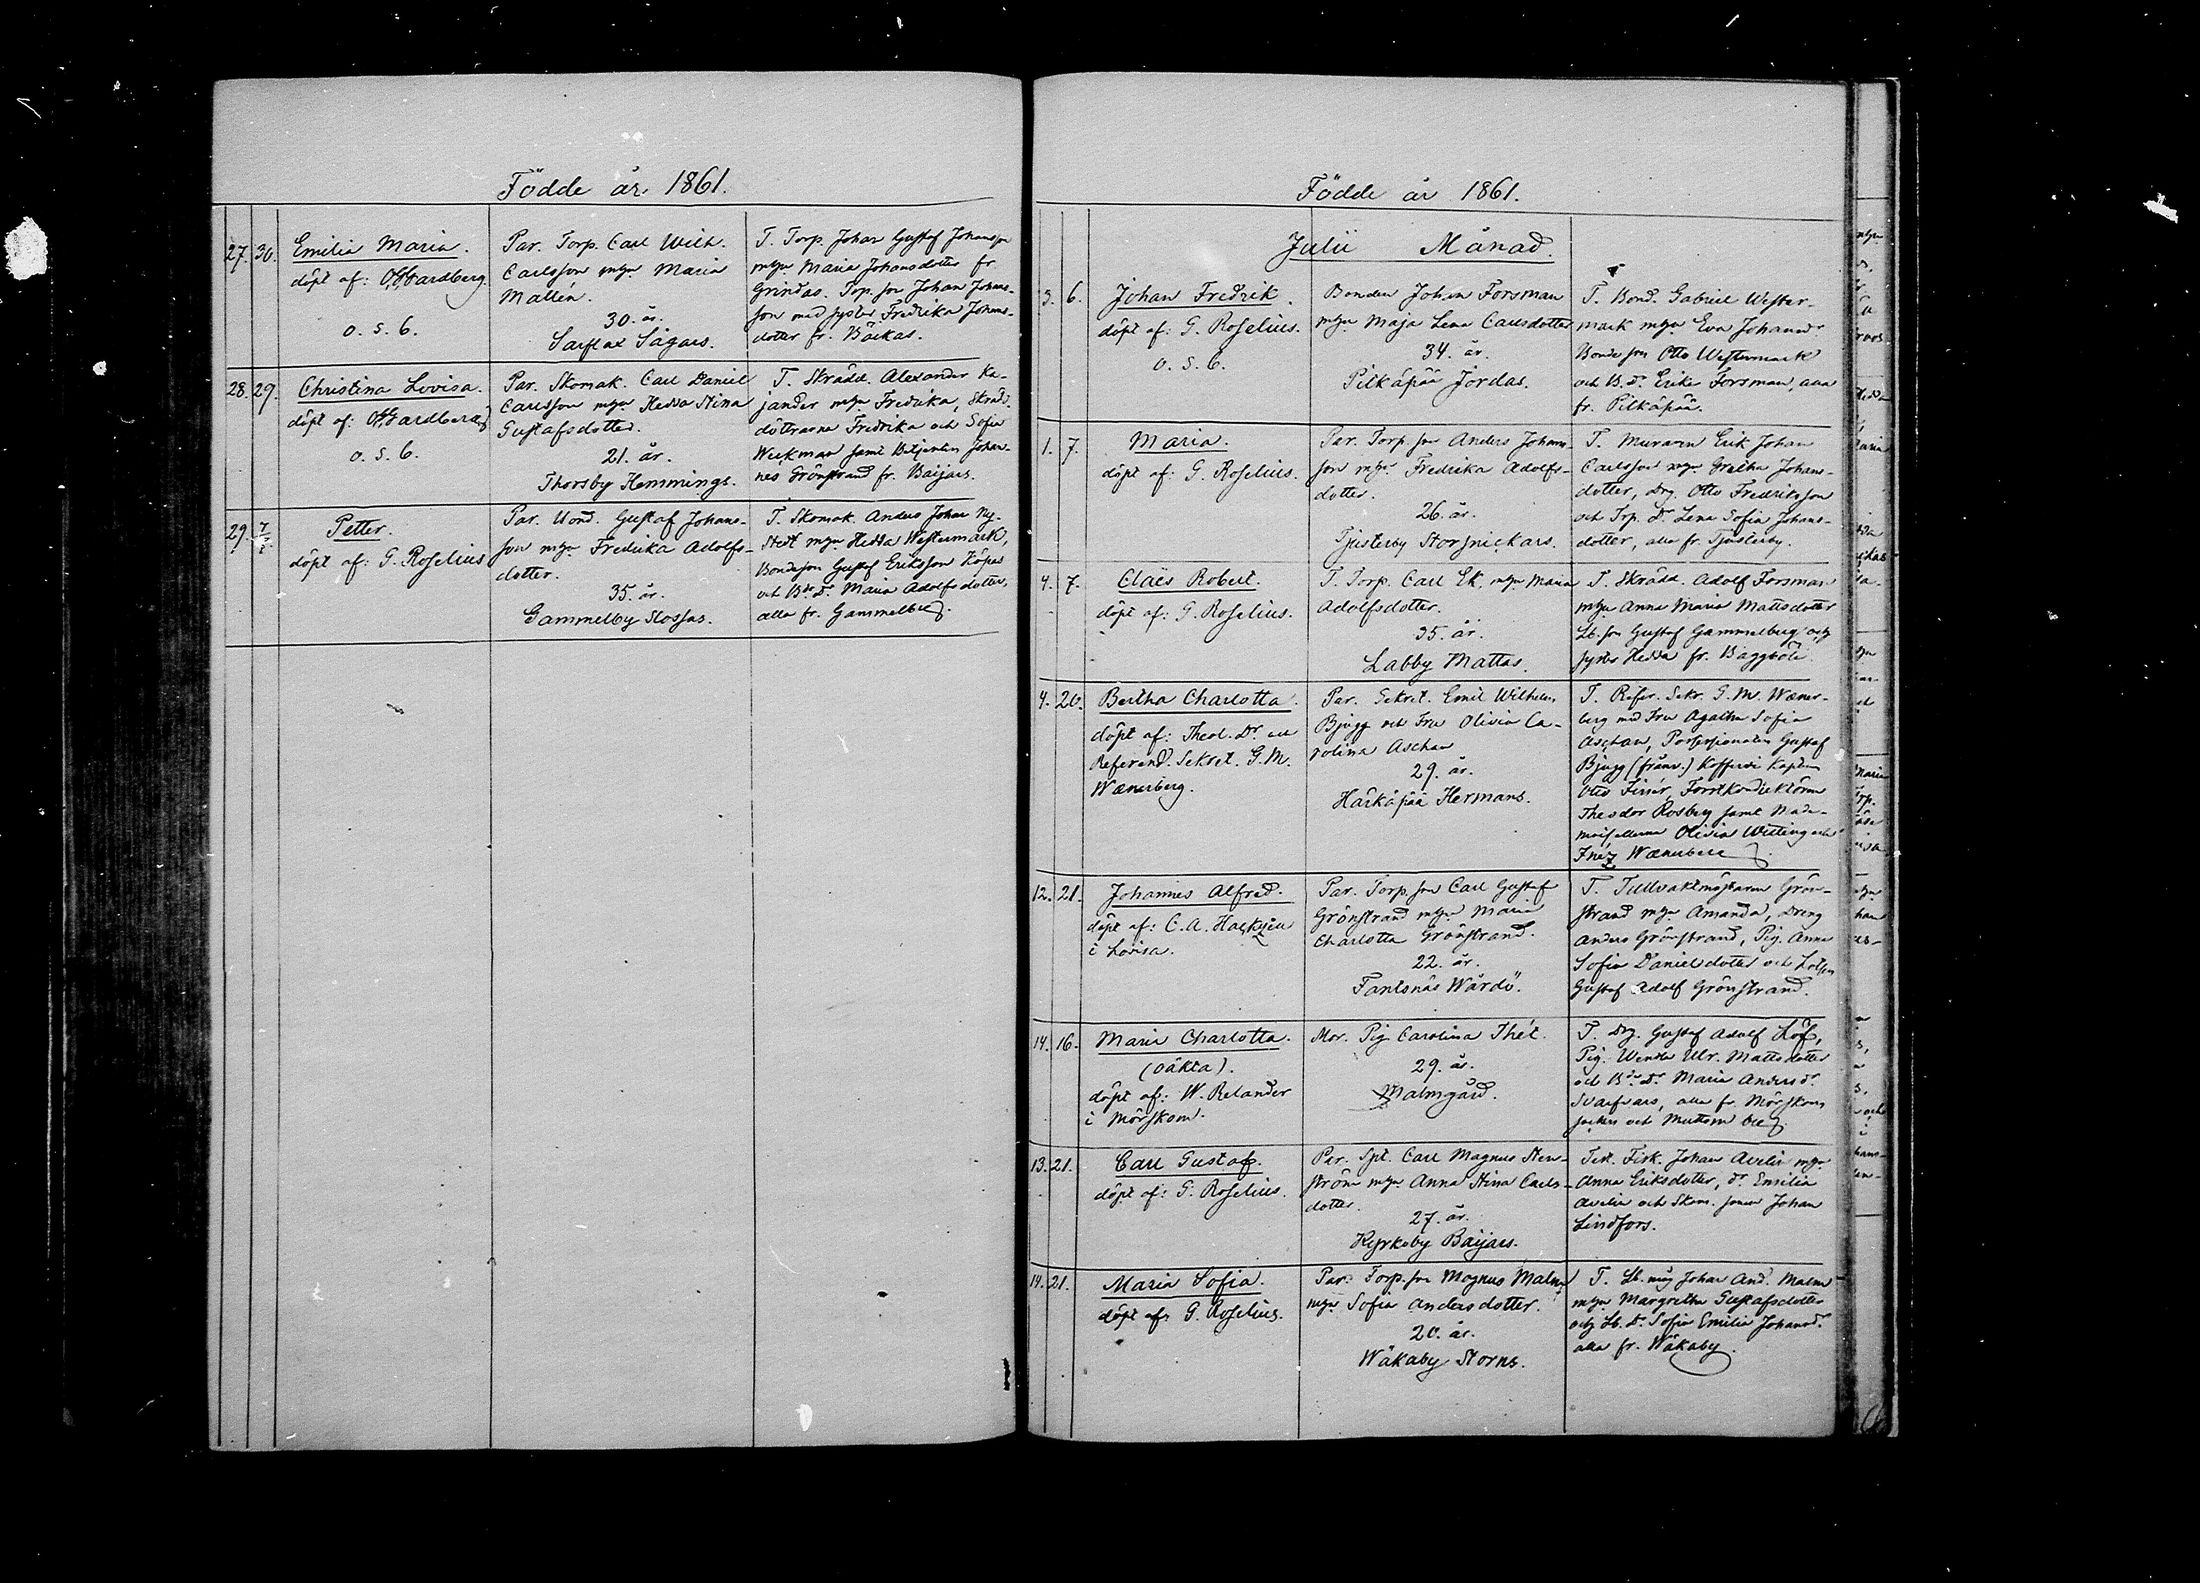 Födde år 1861.
27. 30. Emilia Maria.
döpt af: O. H. Hardberg.
o. s. b.
Par. Torp. Carl Wilh.
Carlsson m hu Maria
Mallén.
30. år.
Sarflax Sågars.
T. Torp. Johan Gustaf Johansson
m hu Maria Johansdotter fr.
Grindas. Torp. son Johan Johans-
son med syster Fredrika Johans-
dotter fr. Bäckas.
28. 29. Christina Lovisa.
döpt af: O. H. Hardberg
o. s. b.
Par. Skomak. Carl Daniel
Carlsson m hu Hedda Stina
Gustafsdotter.
21. år.
Thorsby Hemmings.
T. Skrädd. Alexander Ka-
jander m hu Fredrika, Skrädd.
döttrarne Fredrika och Sofia
Weckman samt Betjenten Johan-
nes Grönstrand fr. Baijars.
29. 7/7 Petter.
döpt af: G. Roselius
Par. Bond. Gustaf Johans-
son m hu Fredrika Adolfs-
dotter.
35. år.
Gammelby Slossas.
T. Skomak. Anders Johan Ny-
stedt m hu Hedda Westermark,
Bondeson Gustaf Eriksson Köpas
och Bde Dr Maria Adolfsdotter,
alla fr. Gammelby.
Födde år 1861.
Julii Månad.
3. 6. Johan Fredrik.
döpt af: G. Roselius.
o. s. b.
Bonden Johan Forsman
m hu Maja Lena Carlsdotter
34. år.
Pilkåpää Jordas.
T. Bond. Gabriel Wester-
mark m hu Eva Johansdr
Bonde son Otto Westermark
och B. Dr Erika Forsman, alla
fr. Pilkåpää.
1. 7. Maria.
döpt af: G. Roselius.
Par. Torp. son Anders Johans-
son m hu Fredrika Adolfs-
dotter.
26. år.
Tjusterby Storsnickars.
T. Muraren Erik Johan
Carlsson m hu Gretha Johans-
dotter, Drg. Otto Fredriksson
och Trp. Dr Lena Sofia Johans-
dotter, alla fr. Tjusterby.
4. 7. Claës Robert.
döpt af: G. Roselius.
T. Torp. Carl Ek m hu Maria
Adolfsdotter.
35. år.
Labby Mattas.
T. Skrädd. Adolf Forsman
m hu Anna Maria Mattsdotter
Lb. son Gustaf Gammelberg och
syster Hedda fr. Baggböle.
4. 20. Bertha Charlotta.
döpt af: Theol. Dr och
Referend. Sekret. G. M.
Wænerberg.
Par. Sekret. Emil Wilhelm
Bjugg och Fru Olivia Ca-
rolina Aschan
29. år.
Härkäpää Hermans.
T. Refer. Sekr. G. M. Wæner-
berg med Fru Agatha Sofia
Aschan, Possessionaten Gustaf
Bjugg (frånv.) Kofferdi Kapten
Theodor Rosberg samt Made-
moisellerna Olivia Witting och
Inéz Wænerberg
12. 21. Johannes Alfred.
döpt af: C. A. Hackzén
i Lovisa.
Par. Torp. son Carl Gustaf
Grönstrand m hu Maria
Charlotta Grönstrand.
22. år.
Fantsnäs Wårdö.
T. Tullvaktmästaren Grön-
strand m hu Amanda, Dreng
Anders Grönstrand, Pig. Anna
Sofia Danielsdotter och Lotsen
Gustaf Adolf Grönstrand.
14. 16. Maria Charlotta.
(oäkta).
döpt af: W. Relander
i Mörskom.
Mor. Pig. Carolina Thél.
29. år.
Malmgård.
T. Drg. Gustaf Adolf Löf,
Pig. Wenda Ulr. Mattsdotter
och Bde Dr Maria Andersdr
Svarfvars, alla fr. Mörskom
socken och
13. 21. Carl Gustaf.
döpt af: G. Roselius.
Par. Spt. Carl Magnus Sten-
ström m hu Anna Stina Carls-
dotter.
27. år.
Kyrkoby Baijars.
Tit. Fisk. Johan Avelin m hu
Anna Eriksdotter, dr Emilia
Avelin och Skom. sonen Johan
Lindfors.
14. 21. Maria Sofia.
döpt af: G. Roselius.
Par. Torp. son Magnus Malm
m hu Sofia Andersdotter.
20. år.
Wåkaby Storns.
T. Lb. måg Johan And. Malm
m hu Margretha Gustafsdotter
och Lb. Dr Sofia Emilia Johansd.
alla fr. Wåkaby.